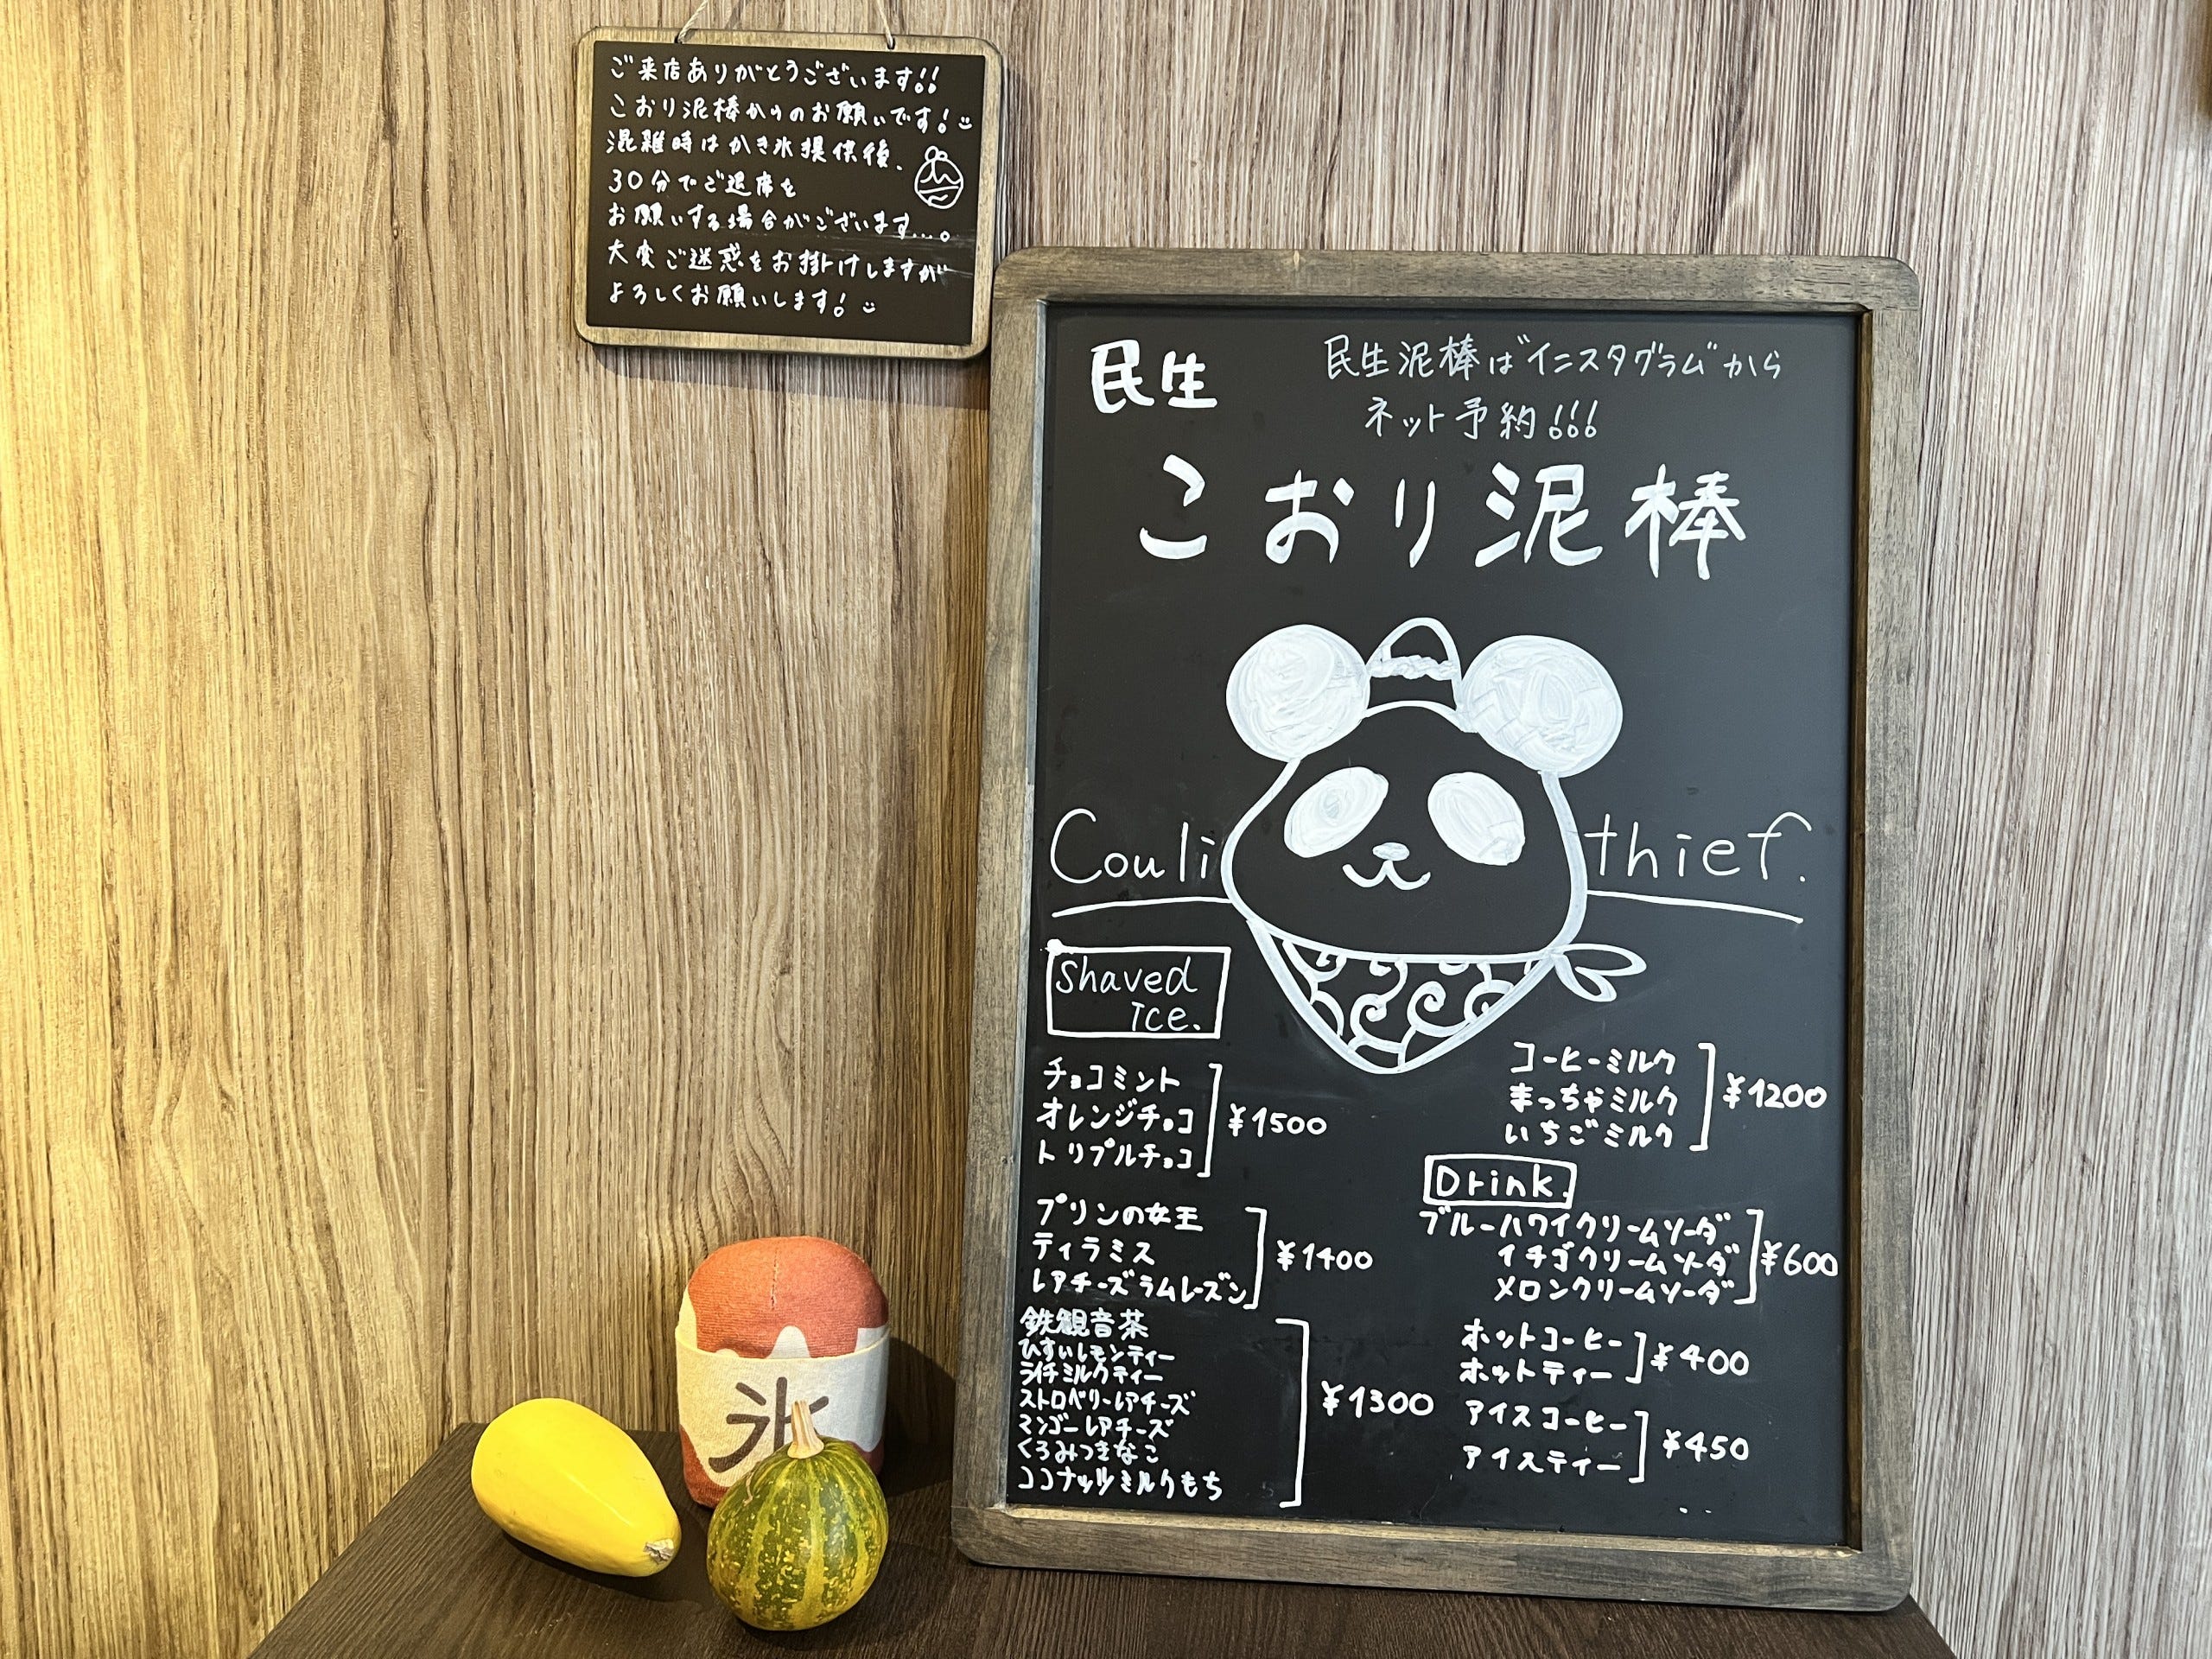 ご来店ありがとうございます!!
こおり泥棒からのお願いです!
混雑時はかき氷提供後、
30分でご退席を
お願いする場合がございます...。
大変ご迷惑をお掛けしますが
よろしくお願いします!
民生
民生泥棒は"インスタグラム"から
ネット予約!!!
こおり泥棒
Couli thief.
Shaved
Ice.
チョコミント
オレンジチョコ
トリプルチョコ
¥1500
プリンの女王
ティラミス
レアチーズラムレーズン
¥1400
鉄観音茶
ひすいレモンティー
ライチミルクティー
ストロベリーレアチーズ
マンゴーレアチーズ
くろみつきなこ
ココナッツミルクもち
¥1300
コーヒーミルク
まっちゃミルク
いちごミルク
¥1200
Drink.
ブルーハワイクリームソーダ
イチゴクリームソーダ
メロンクリームソーダ
¥600
ホットコーヒー
ホットティー
¥400
アイスコーヒー
アイスティー
¥450
氷